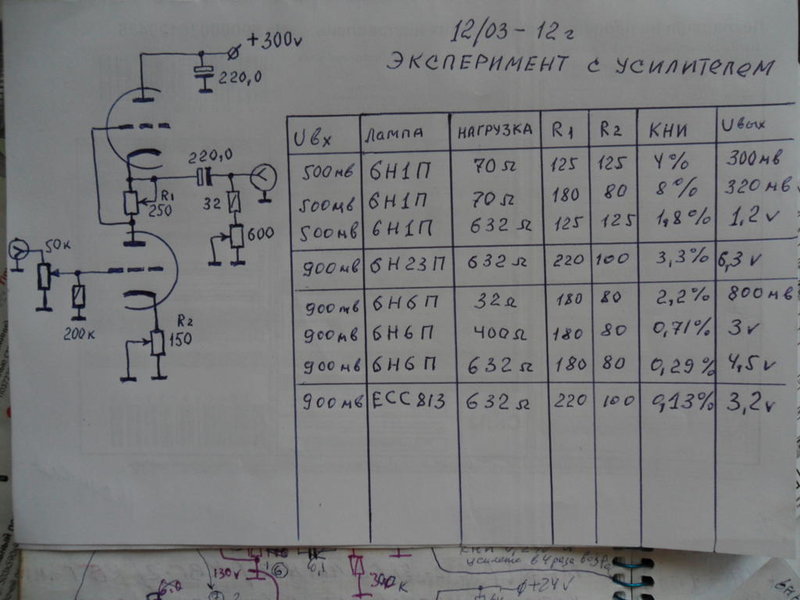 12/03 – 12 г
ЭКСПЕРИМЕНТ С УСИЛИТЕЛЕМ
+300v
220,0
220,0
R1
250
32
600
50к
200к
R2
150
Uвх ЛАМПА НАГРУЗКА R1 R2 КНИ Uвых
500мв 6Н1П 70Ω 125 125 4% 300мв
500мв 6Н1П 70Ω 180 80 8% 320мв
500мв 6Н1П 632Ω 125 125 1,8% 1,2v
900мв 6Н23П 632Ω 220 100 3,3% 6,3v
900мв 6Н6П 32Ω 180 80 2,2% 800мв
900мв 6Н6П 400Ω 180 80 0,71% 3v
900мв 6Н6П 632Ω 180 80 0,29% 4,5v
900мв ECC813 632Ω 220 100 0,13% 3,2v
130v
0,1
+24V